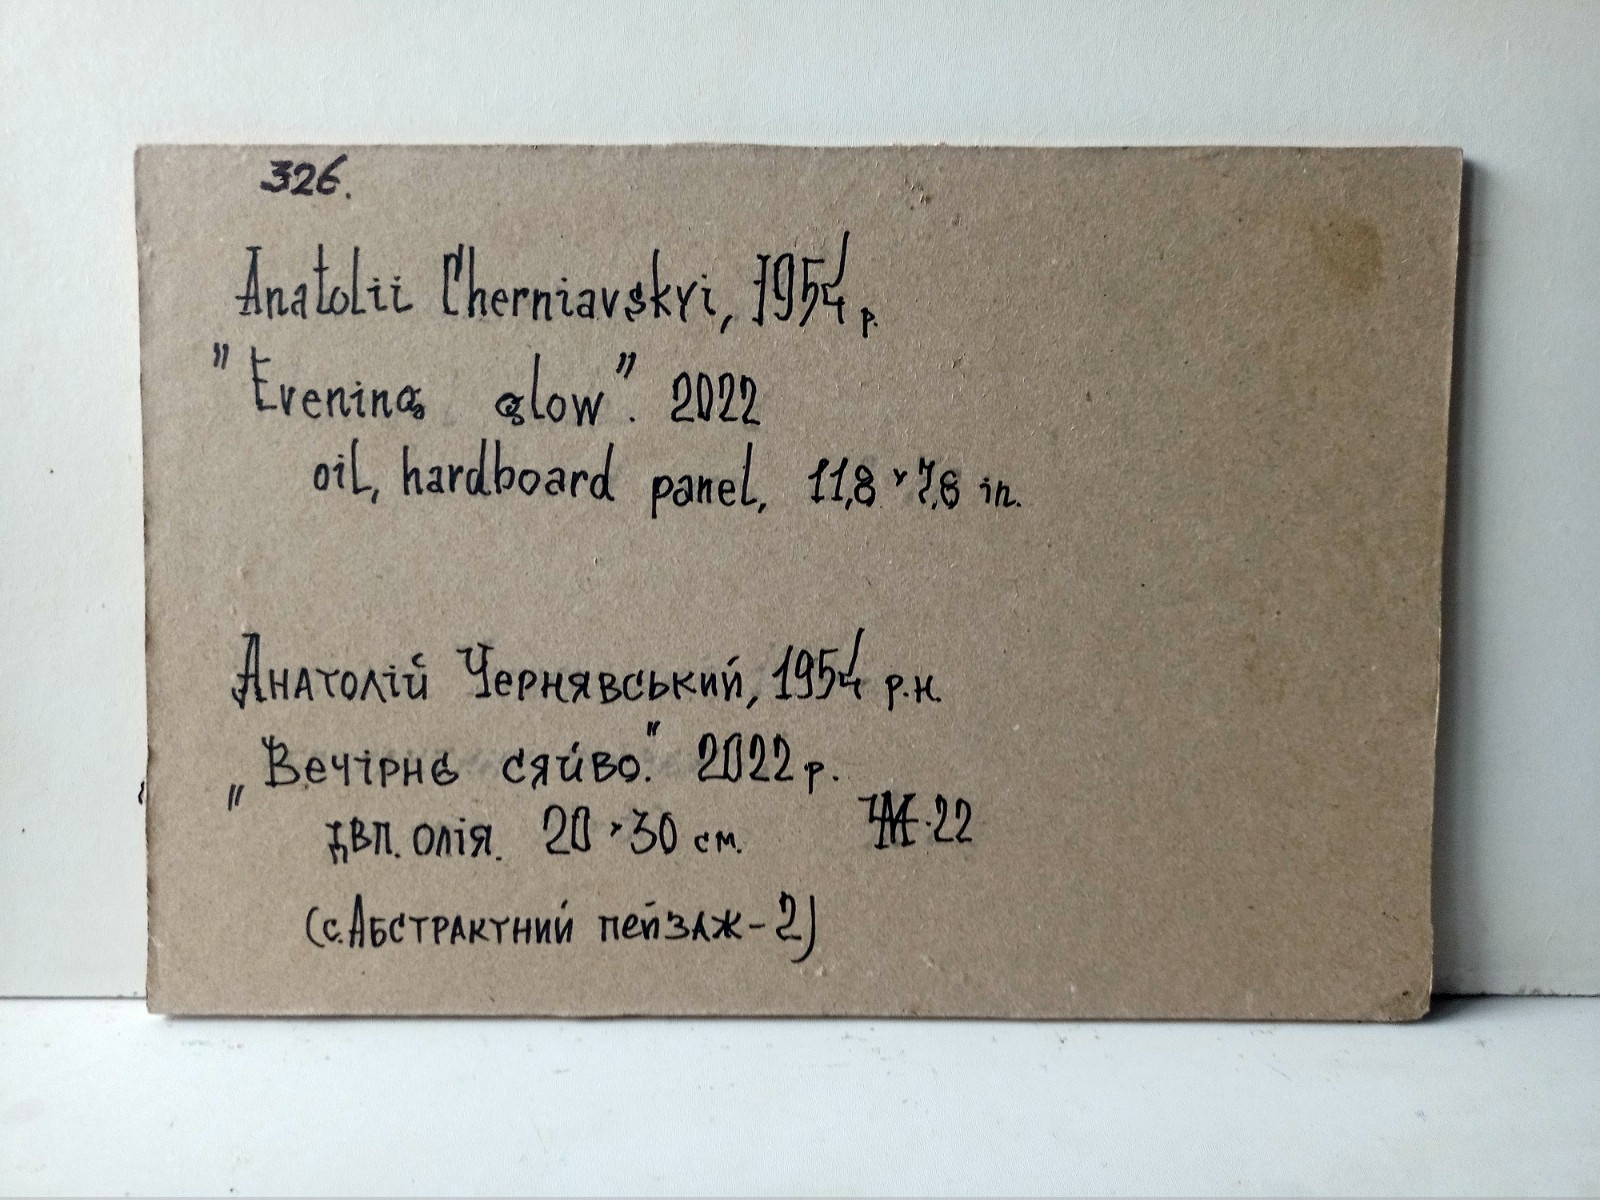 326.
Anatolii Cherniavskyi, 1954 р.
"Evening glow". 2022
oil, hardboard panel, 11,8 x 7,8 in.
Анатолій Чернявський, 1954 р.н.
„Вечірнє сяйво." 2022 р.
ДВП. олія. 20 x 30 см.
22
(с. Абстрактний пейзаж - 2)